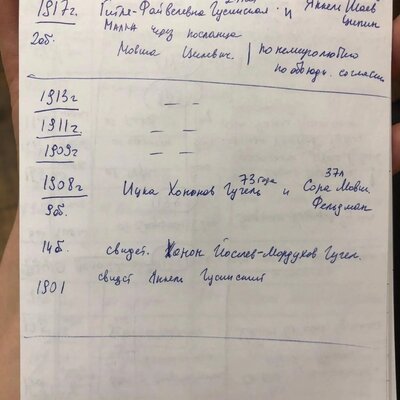 1917г. Гитля-Файвелевна Гусинская. и Янкель Шаев Ципин
20б. Малка через посланца
Мовша Цилевич. | по немиролюбию
по обоюдн. согласию
1913г — —
1911г. — —
1909г — —
1908г Ицка Хононов Гугель 73 года и Сора Мовш. 37л
9б. Фельдман
14б. свидет. Ханон Иоселев-Мордухов Гугел.
1901 свидет Янкель Гусинский